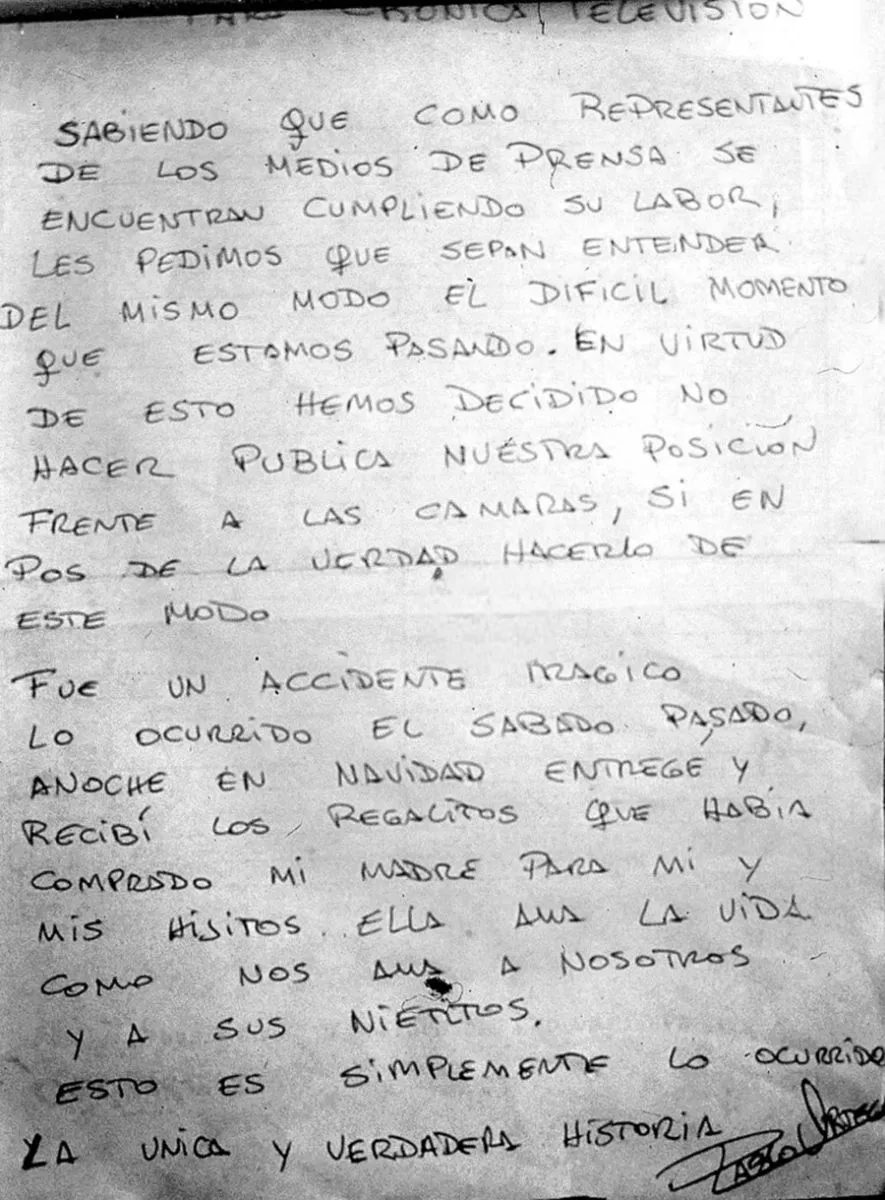 PARA CRONICA TELEVISION
SABIENDO QUE COMO REPRESENTANTES
DE LOS MEDIOS DE PRENSA SE
ENCUENTRAN CUMPLIENDO SU LABOR,
LES PEDIMOS QUE SEPAN ENTENDER
DEL MISMO MODO EL DIFICIL MOMENTO
QUE ESTAMOS PASANDO. EN VIRTUD
DE ESTO HEMOS DECIDIDO NO
HACER PUBLICA NUESTRA POSICIÓN
FRENTE A LAS CAMARAS, SI EN
POS DE LA VERDAD HACERLO DE
ESTE MODO
FUE UN ACCIDENTE TRAGICO
LO OCURRIDO EL SABADO PASADO,
ANOCHE EN NAVIDAD ENTREGE Y
RECIBÍ LOS REGALITOS QUE HABÍA
COMPRADO MI MADRE PARA MI Y
MIS HIJITOS. ELLA AMA LA VIDA
COMO NOS AMA A NOSOTROS
Y A SUS NIETITOS.
ESTO ES SIMPLEMENTE LO OCURRIDO
LA UNICA Y VERDADERA HISTORIA